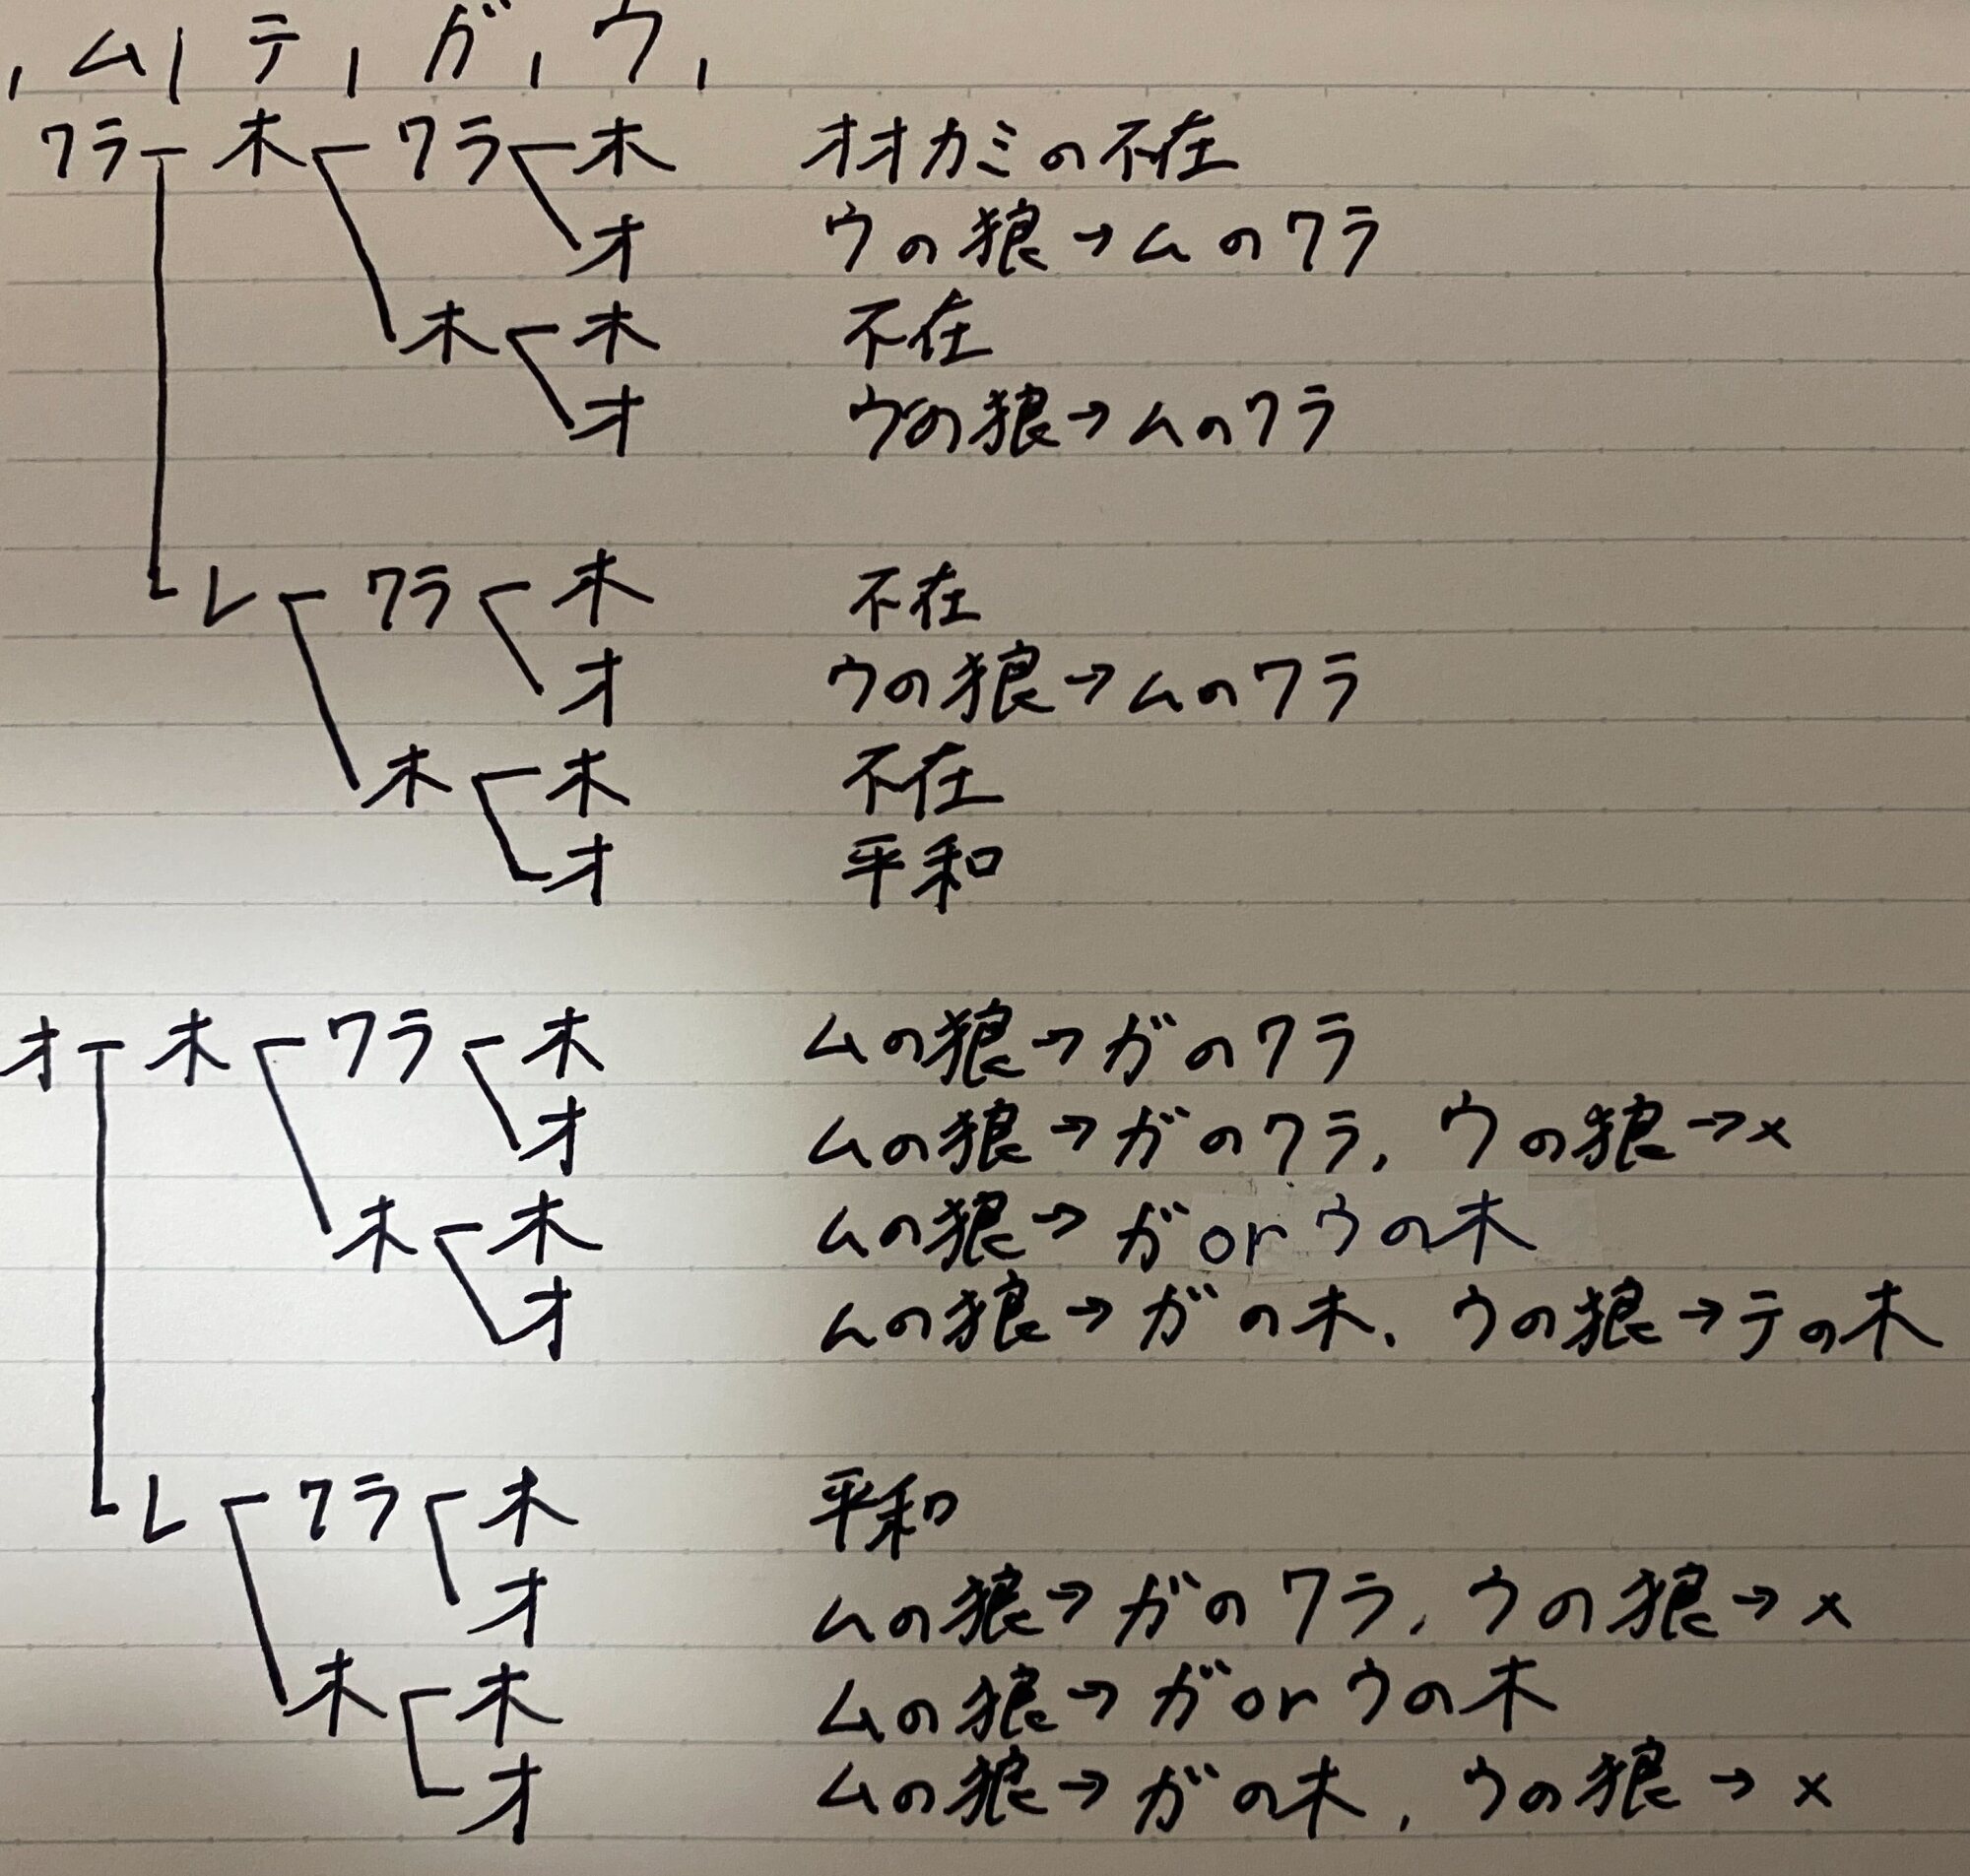 , ム, テ, ガ, ウ,
ワラ 木 ワラ 木 オオカミの不在
オ ウの狼→ムのワラ
木 木 不在
オ ウの狼→ムのワラ
レ ワラ 木 不在
オ ウの狼→ムのワラ
木 木 不在
オ 平和
オ 木 ワラ 木 ムの狼→ガのワラ
オ ムの狼→ガのワラ, ウの狼→×
木 木 ムの狼→ガorウの木
オ ムの狼→ガの木, ウの狼→テの木
レ ワラ 木 平和
オ ムの狼→ガのワラ, ウの狼→×
木 木 ムの狼→ガorウの木
オ ムの狼→ガの木, ウの狼→×